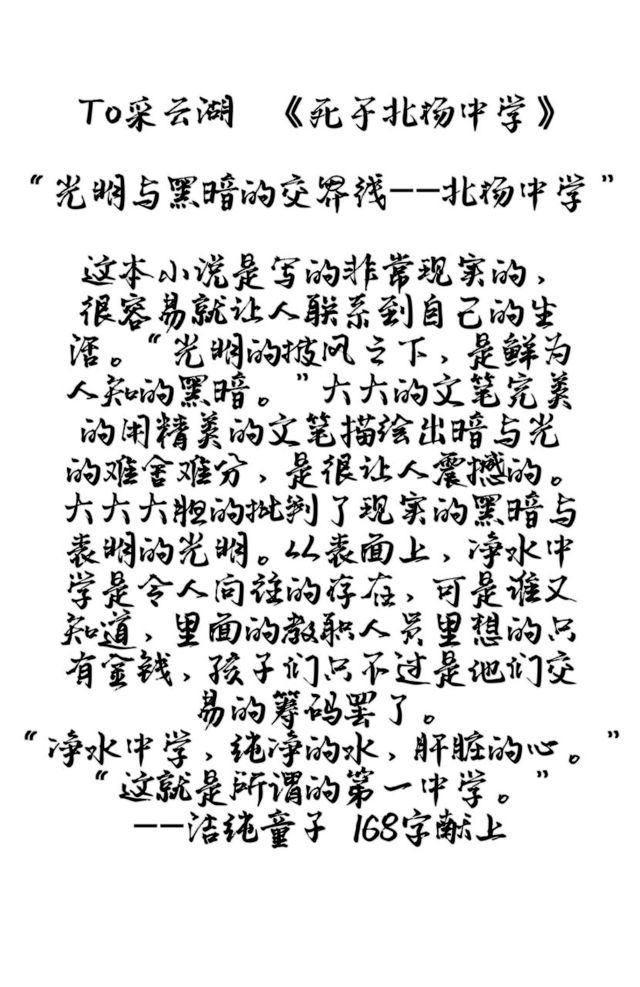 To采云湖 《死于北杨中学》
“光明与黑暗的交界线——北杨中学”
这本小说是写的非常现实的，
很容易就让人联系到自己的生
活。“光明的披风之下，是鲜为
人知的黑暗。”大大的文笔完美
的用精美的文笔描绘出暗与光
的难舍难分，是很让人震撼的。
大大大胆的批判了现实的黑暗与
表明的光明。从表面上，净水中
学是令人向往的存在，可是谁又
知道，里面的教职人员里想的只
有金钱，孩子们只不过是他们交
易的筹码罢了。
“净水中学，纯净的水，肝脏的心。”
“这就是所谓的第一中学。”
——洁纯童子 168字献上